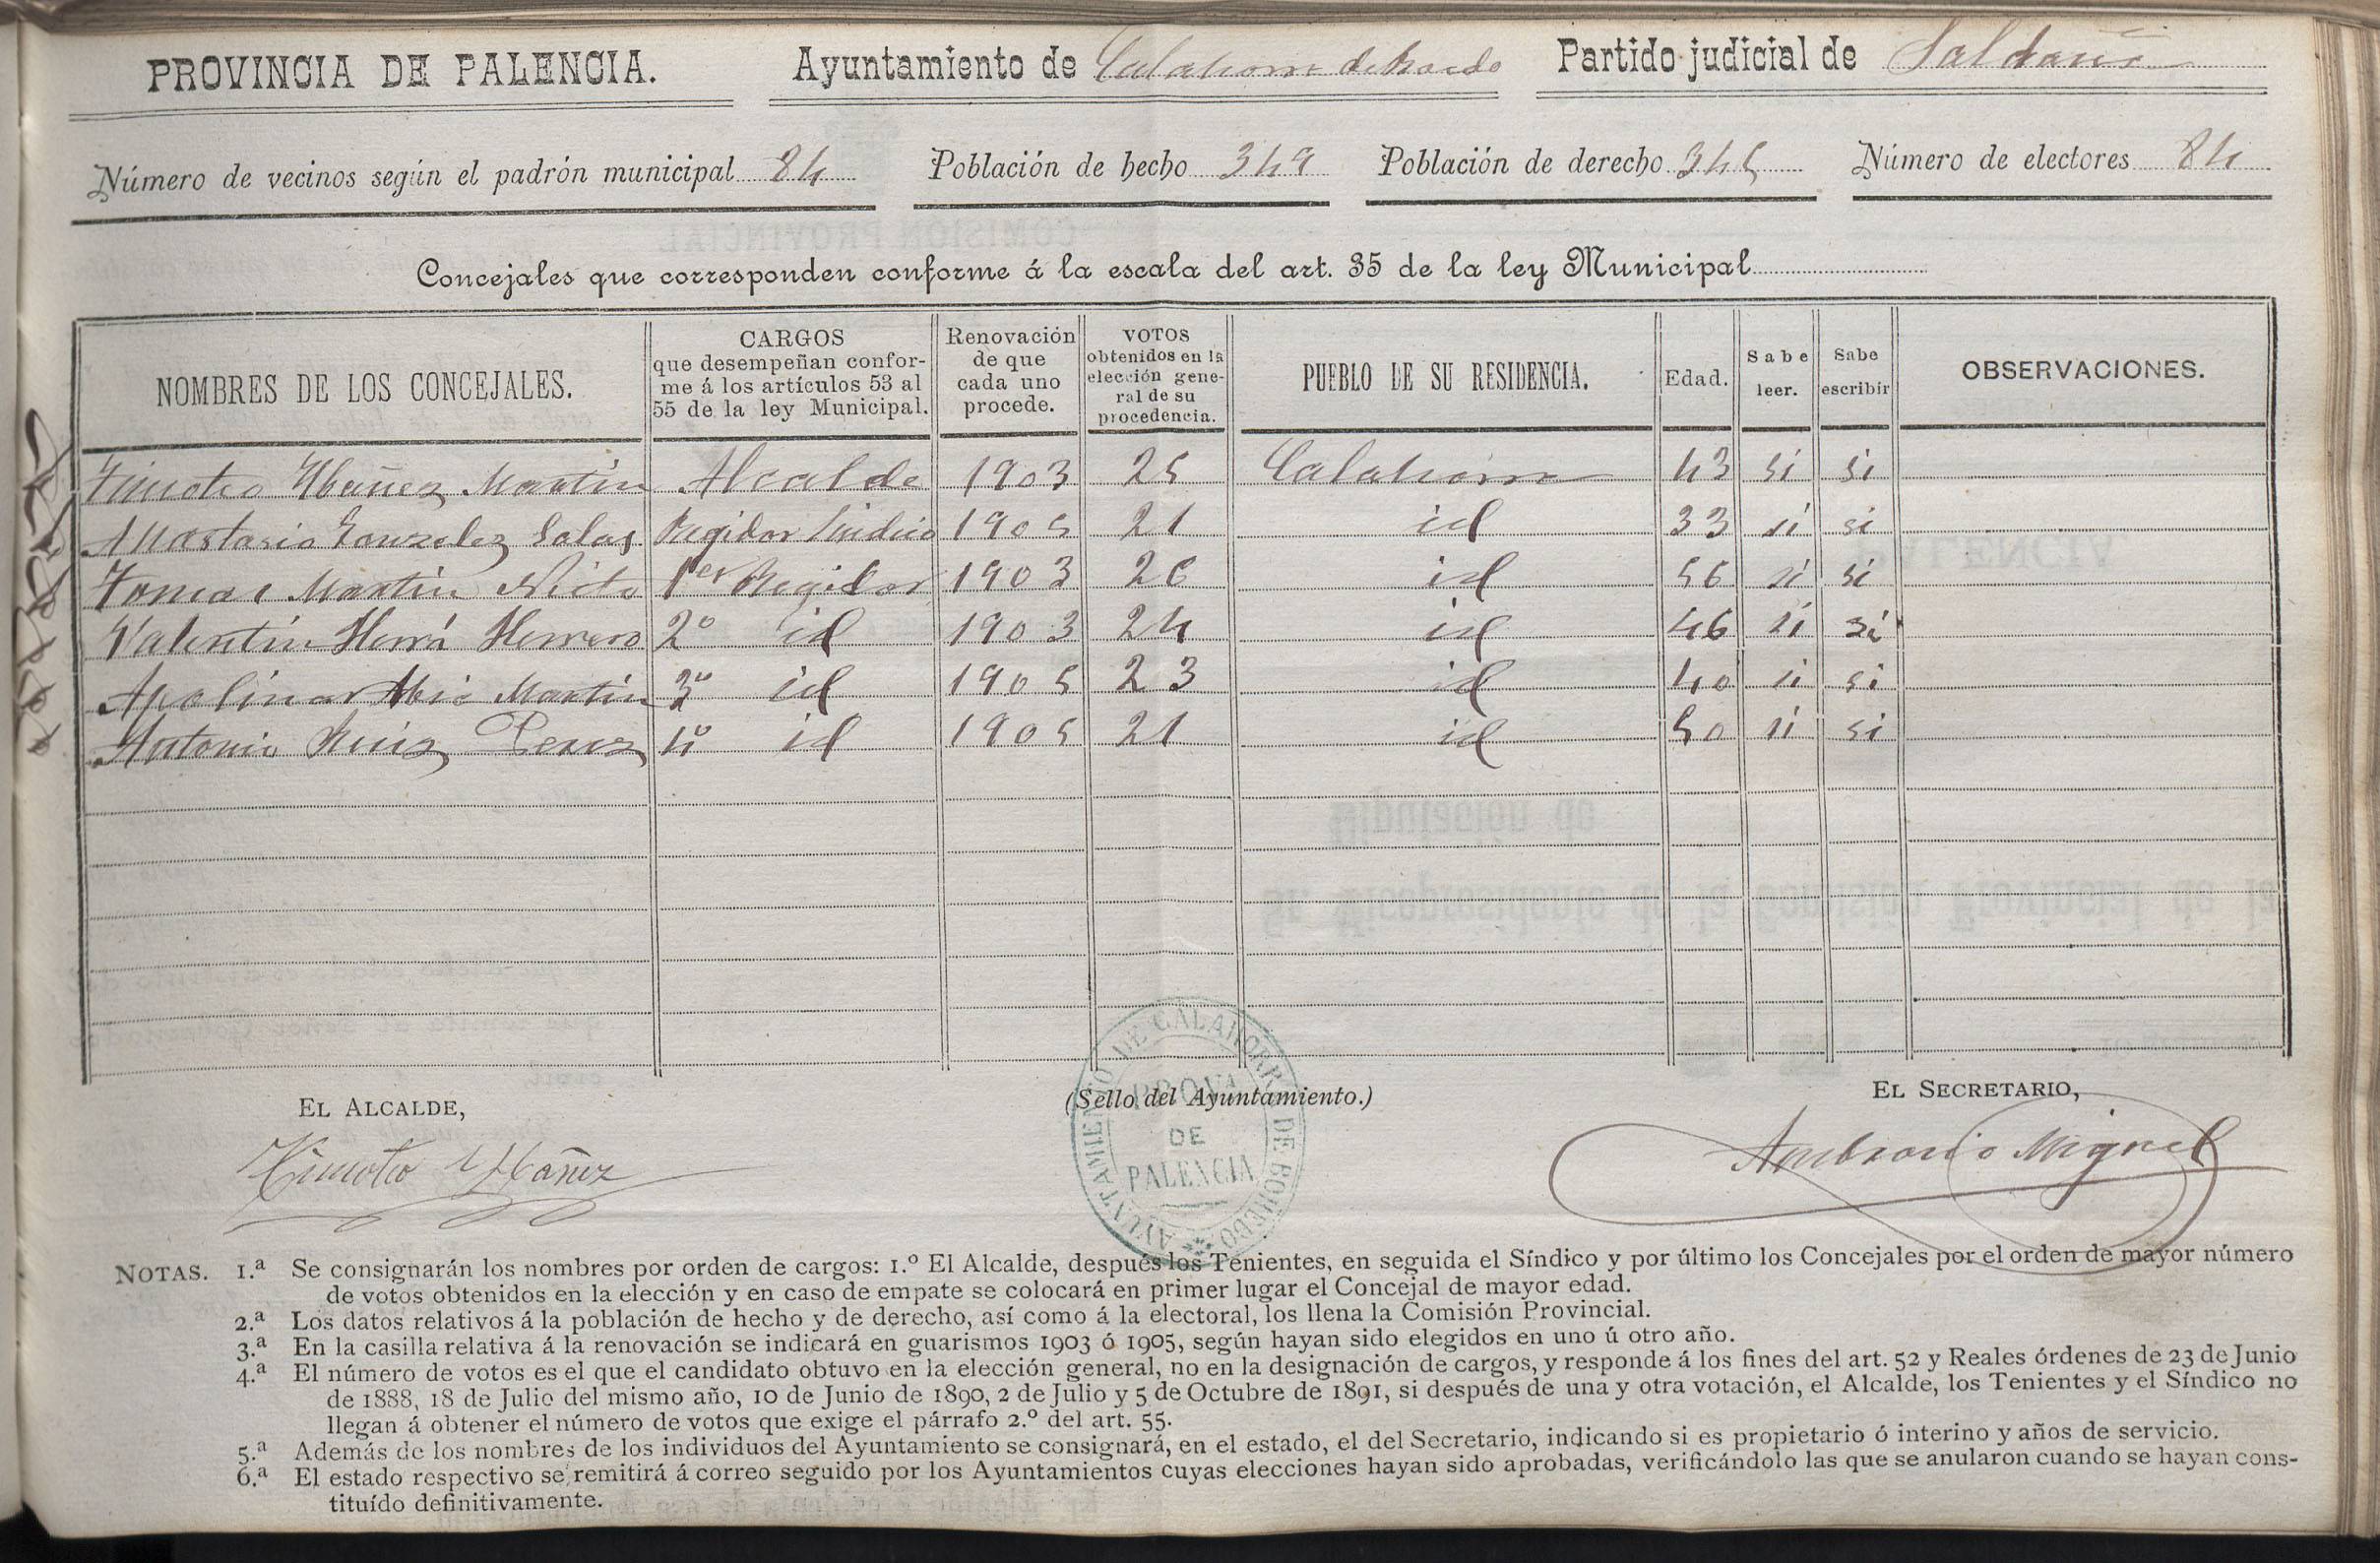 PROVINCIA DE PALENCIA. Ayuntamiento de Calahorra de Boedo Partido judicial de Saldaña
Número de vecinos según el padrón municipal 84 Población de hecho 349 Población de derecho 345 Número de electores 84
Concejales que corresponden conforme á la escala del art. 35 de la ley Municipal
NOMBRES DE LOS CONCEJALES. CARGOS que desempeñan confor- me á los artículos 53 al 55 de la ley Municipal. Renovación de que cada uno procede. VOTOS obtenidos en la elección gene- ral de su procedencia. PUEBLO DE SU RESIDENCIA. Edad. Sabe leer. Sabe escribir OBSERVACIONES.
Timoteo Ybañez Martin Alcalde 1903 25 Calahorra 43 si si
Anastasio Gonzalez Salas Regidor Sindico 1905 21 id 33 si si
Tomas Martin Nieto 1er Regidor 1903 26 id 56 si si
Valentin Herrá Herrero 2º id 1903 24 id 46 si si
Apolinar Abia Martin 3º id 1905 23 id 40 si si
Antonio Ruiz Perez 4º id 1905 21 id 50 si si
EL ALCALDE, (Sello del Ayuntamiento.) EL SECRETARIO,
Timoteo Ybáñez Ambrosio Miguel
AYUNTAMIENTO DE CALAHORRA DE BOEDO
PROVA
DE
PALENCIA
NOTAS. 1.ª Se consignarán los nombres por orden de cargos: 1.º El Alcalde, después los Tenientes, en seguida el Síndico y por último los Concejales por el orden de mayor número
de votos obtenidos en la elección y en caso de empate se colocará en primer lugar el Concejal de mayor edad.
2.ª Los datos relativos á la población de hecho y de derecho, así como á la electoral, los llena la Comisión Provincial.
3.ª En la casilla relativa á la renovación se indicará en guarismos 1903 ó 1905, según hayan sido elegidos en uno ú otro año.
4.ª El número de votos es el que el candidato obtuvo en la elección general, no en la designación de cargos, y responde á los fines del art. 52 y Reales órdenes de 23 de Junio
de 1888, 18 de Julio del mismo año, 10 de Junio de 1890, 2 de Julio y 5 de Octubre de 1891, si después de una y otra votación, el Alcalde, los Tenientes y el Síndico no
llegan á obtener el número de votos que exige el párrafo 2.º del art. 55.
5.ª Además de los nombres de los individuos del Ayuntamiento se consignará, en el estado, el del Secretario, indicando si es propietario ó interino y años de servicio.
6.ª El estado respectivo se remitirá á correo seguido por los Ayuntamientos cuyas elecciones hayan sido aprobadas, verificándolo las que se anularon cuando se hayan cons-
tituído definitivamente.